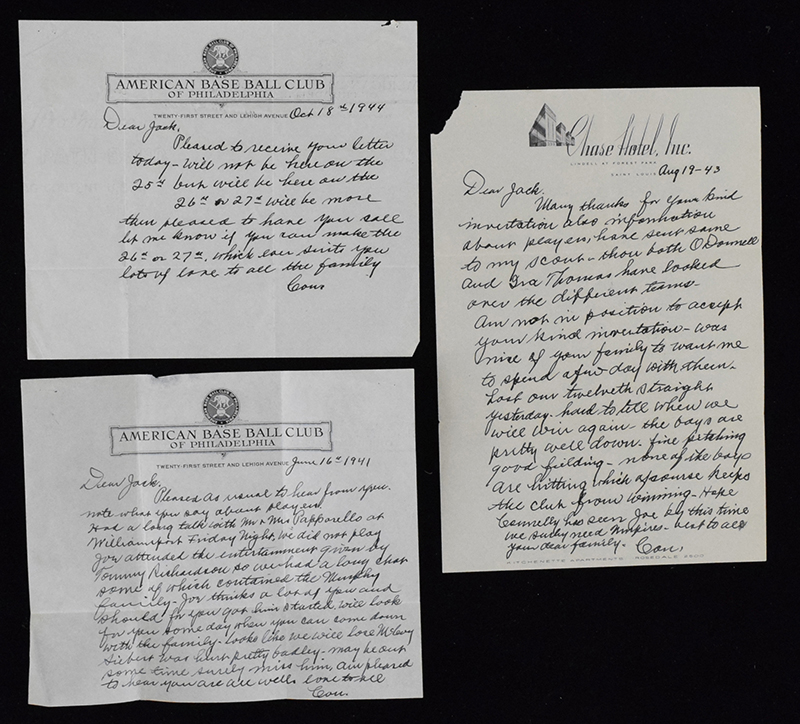 AMERICAN BASE BALL CLUB
OF PHILADELPHIA
TWENTY-FIRST STREET AND LEHIGH AVENUE Oct 18th 1944
Dear Jack.
Pleased to receive your letter
today - will not be here on the
25th but will be here on the
26th or 27th will be more
then pleased to have you call
let me know if you can make the
26th or 27th, which ever suits you
lots of love to all the family
Con
AMERICAN BASE BALL CLUB
OF PHILADELPHIA
TWENTY-FIRST STREET AND LEHIGH AVENUE June 16th 1941
Dear Jack.
Pleased as usual to hear from you.
note what you say about players.
Had a long talk with Mr & Mrs Papparello at
Williamsport Friday Night, we did not play
Joe attended the entertainment given by
Tommy Richardson so we had a long chat
some of which contained the Murphy
family - Joe thinks a lot of you and
should for you got him started, will look
for you some day when you can come down
with the family - looks like we will lose McCoy
Siebert was hurt pretty badley - may be out
some time surely miss him, am pleased
to hear you are all well love to all
Con.
Chase Hotel, Inc.
LINDELL AT FOREST PARK
SAINT LOUIS Aug 19-43
Dear Jack.
Many thanks for your kind
invertation also information
about players, have sent same
to my scout - thou both O'Donnell
and Ira Thomas have looked
over the different teams -
Am not in position to accept
your kind invertation - was
nice of your family to want me
to spend a few day with them -
Lost our twelveth straight
yesterday - hard to tell when we
will win again - the boys are
pretty well down. fine pitching
good fielding - none of the boys
are hitting which ofcourse keeps
the club from winning - Hope
Connelly has seen Joe by this time
we surly need Umpires - best to all
your dear family - Con.
KITCHENETTE APARTMENTS ROSEDALE